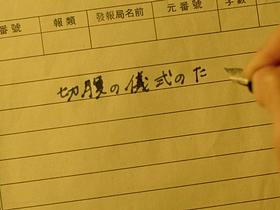 番號
報類
發報局名前
元番號
字數
切腹の儀式のた